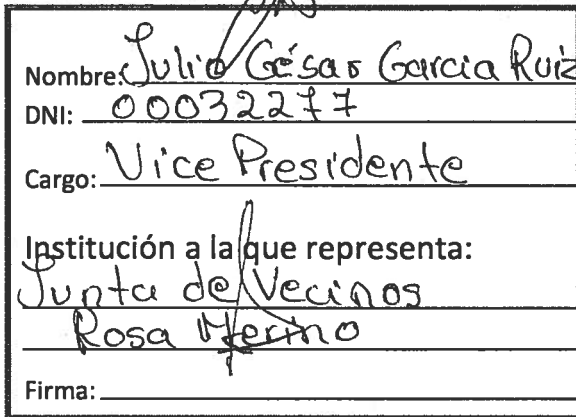 Nombre: Julio César Garcia Ruiz
DNI: 00032277
Cargo: Vice Presidente
Institución a la que representa:
Junta de Vecinos
Rosa Merino
Firma: